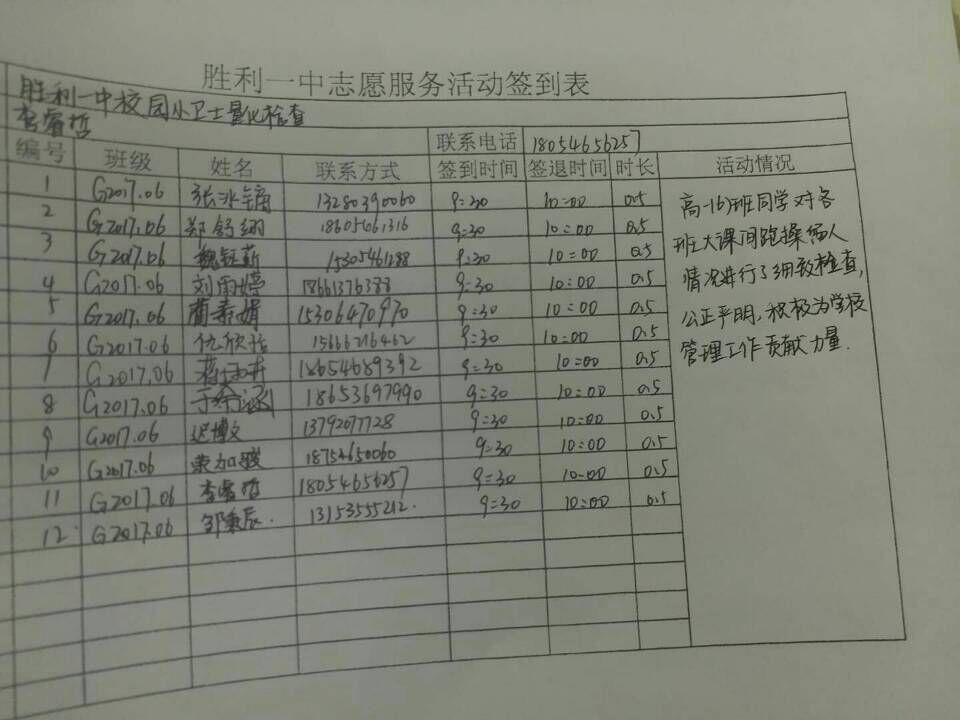 胜利一中志愿服务活动签到表
胜利一中校园小卫士量化检查
李睿哲 联系电话 18054656257
编号 班级 姓名 联系方式 签到时间 签退时间 时长 活动情况
1 G2017.06 张冰 13280390060 9:30 10:00 0.5
2 G2017.06 郑舒翊 18605461316 9:30 10:00 0.5
3 G2017.06 魏钰菥 15305461288 9:30 10:00 0.5
4 G2017.06 刘雨婷 18661376388 9:30 10:00 0.5
5 G2017.06 蔺素娟 15306470970 9:30 10:00 0.5
6 G2017.06 仇欣 15666216462 9:30 10:00 0.5
7 G2017.06 18654689392 9:30 10:00 0.5
8 G2017.06 18653697990 9:30 10:00 0.5
9 G2017.06 迟博文 13792077728 9:30 10:00 0.5
10 G2017.06 荣加骏 18754650060 9:30 10:00 0.5
11 G2017.06 李睿哲 18054656257 9:30 10:00 0.5
12 G2017.06 邹秉辰. 13153555212. 9:30 10:00 0.5
高一16)班同学对各
班大课间跑操留人
情况进行了细致检查,
公正严明,积极为学校
管理工作贡献力量.